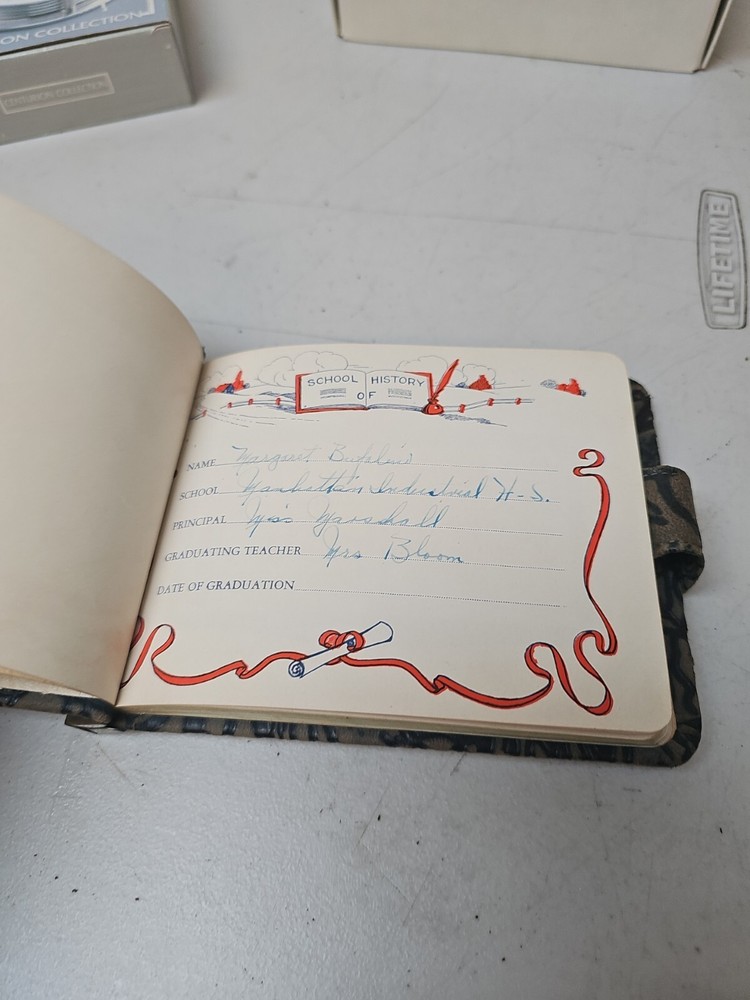 ON COLLECTION
CENTURION COLLECTION
LIFETIME
SCHOOL HISTORY
OF
NAME Margaret
SCHOOL Manhattan Industrial H-S.
PRINCIPAL Miss Marschall
GRADUATING TEACHER Mrs Bloom
DATE OF GRADUATION